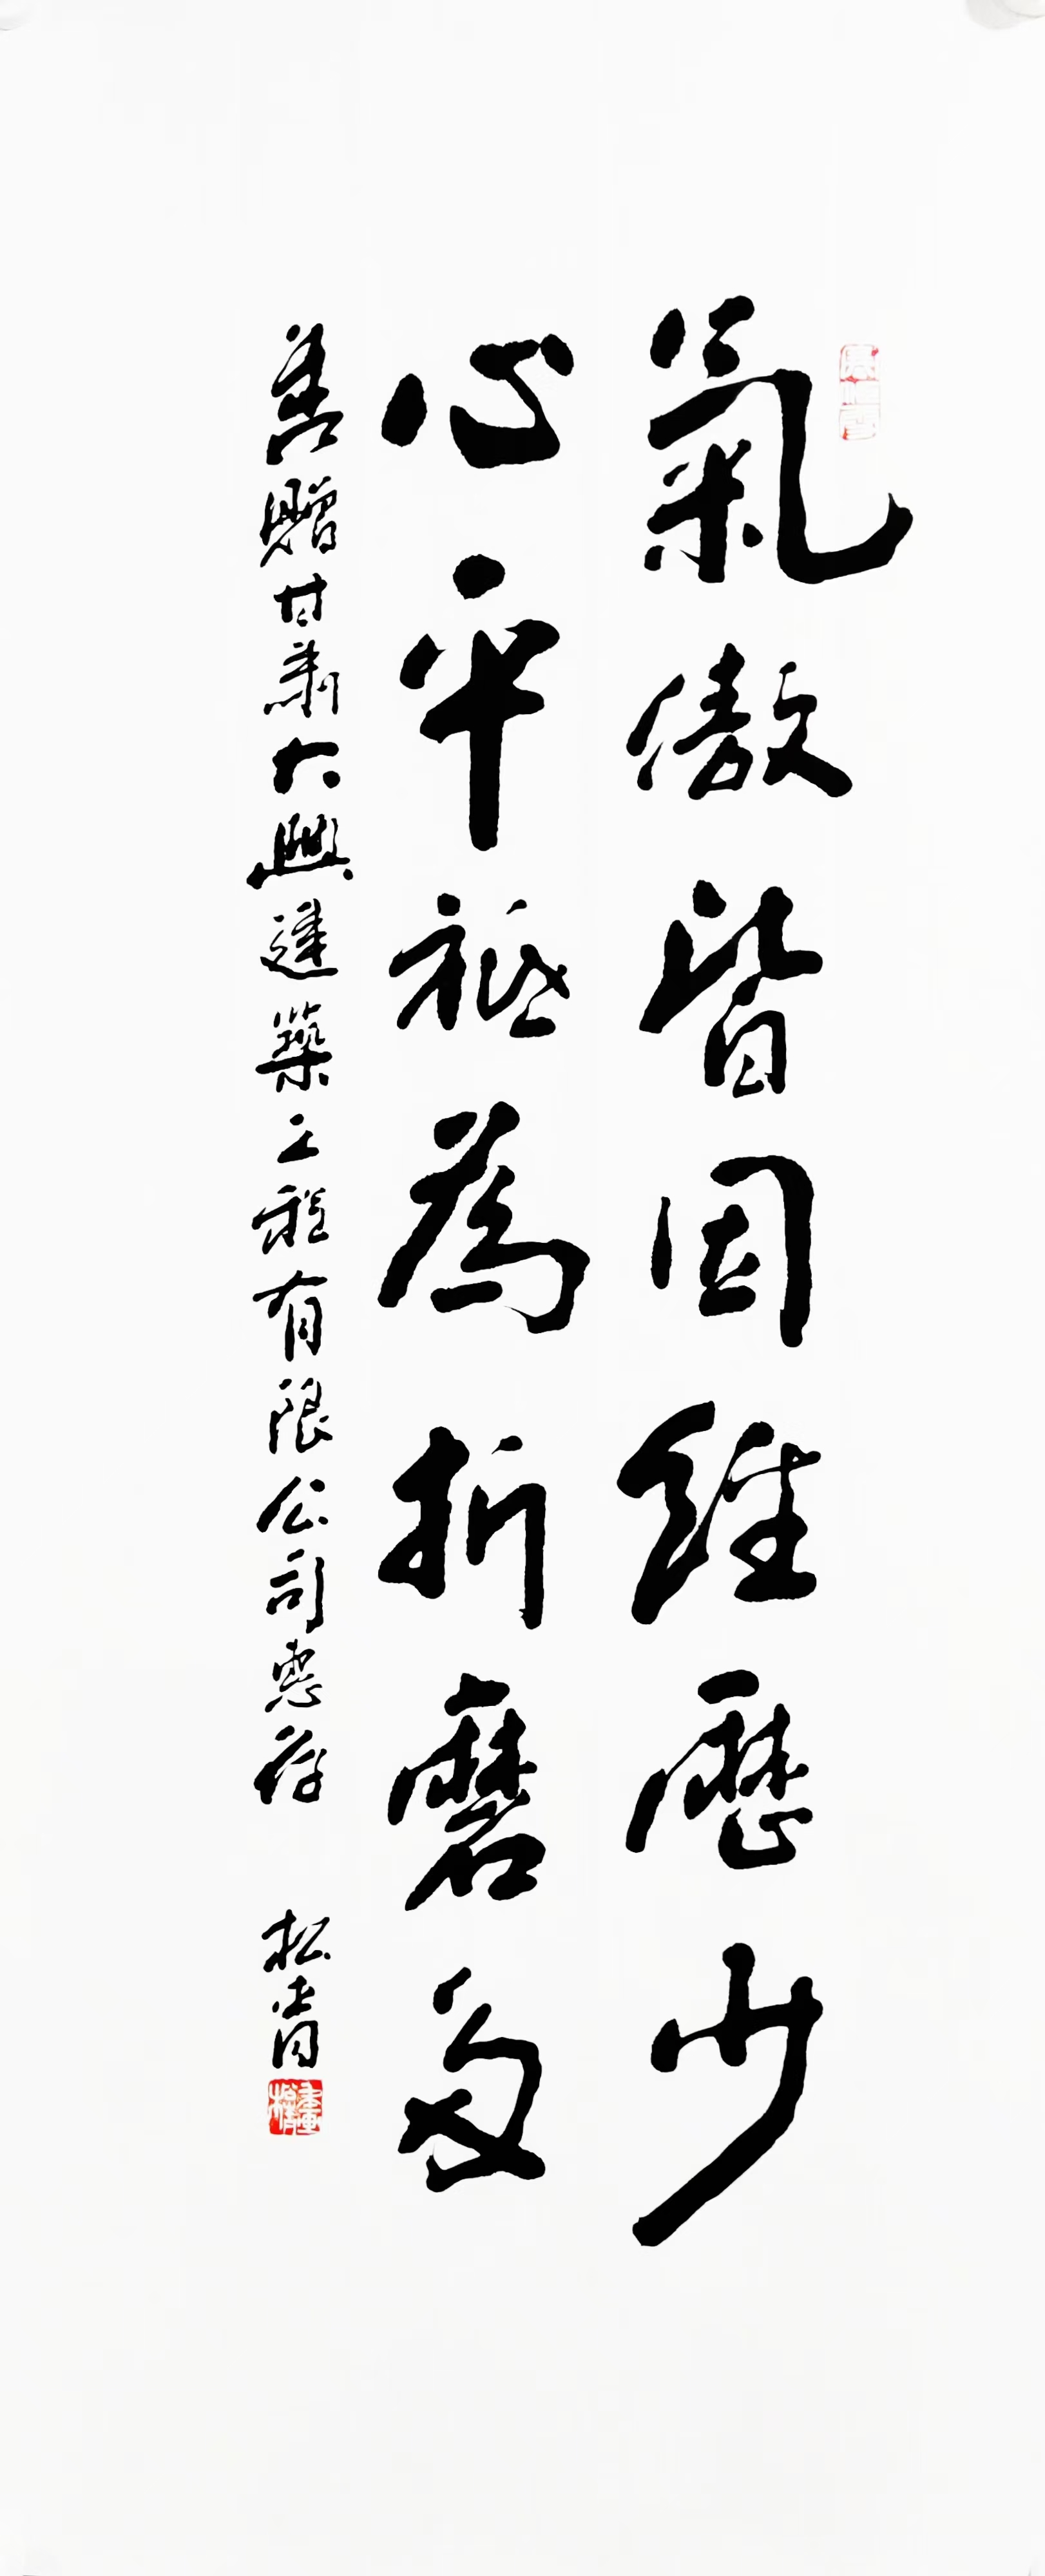 氣傲皆因經歷少
心平祗為折磨多
善贈甘肅大興建築工程有限公司惠存
松青